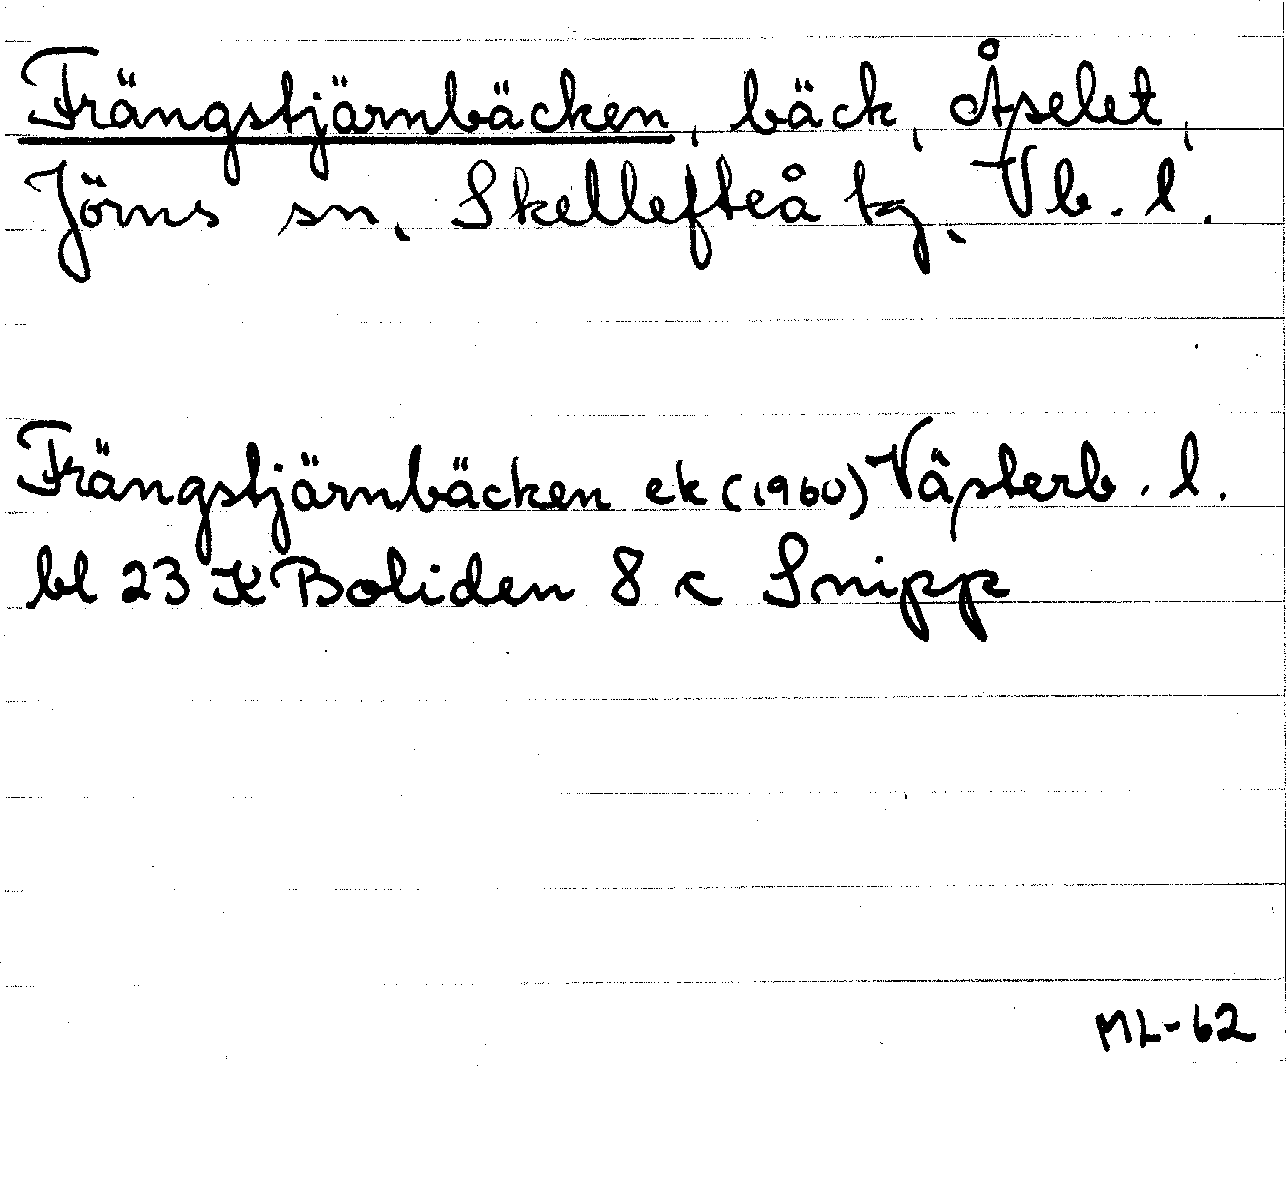 Frängstjärnbäcken, bäck, Åselet,
Jörns sn, Skellefteå tg, Vb. l.
Frängstjärnbäcken ek (1960) Västerb. l.
bl 23 K Boliden 8 c Snipp
ML-62